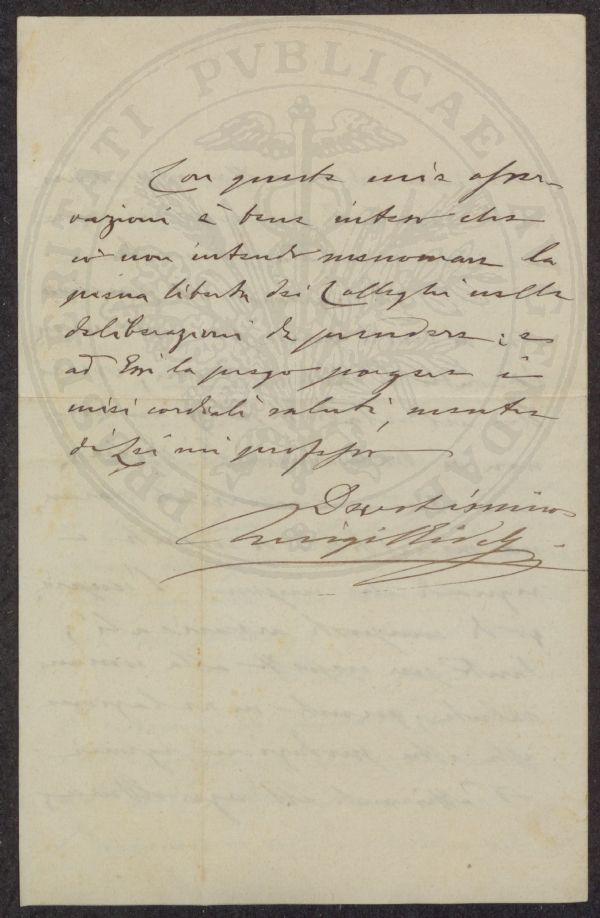 PROSPERITATI PVBLICAE AVGENDAE
Con queste mie osser-
vazioni è bene inteso che
io non intendo menomare la
piena libertà dei Colleghi nelle
deliberazioni da prendere; e
ad Essi la prego porgere i
miei cordiali saluti, mentre
di Lei mi professo
Devotissimo
Luigi